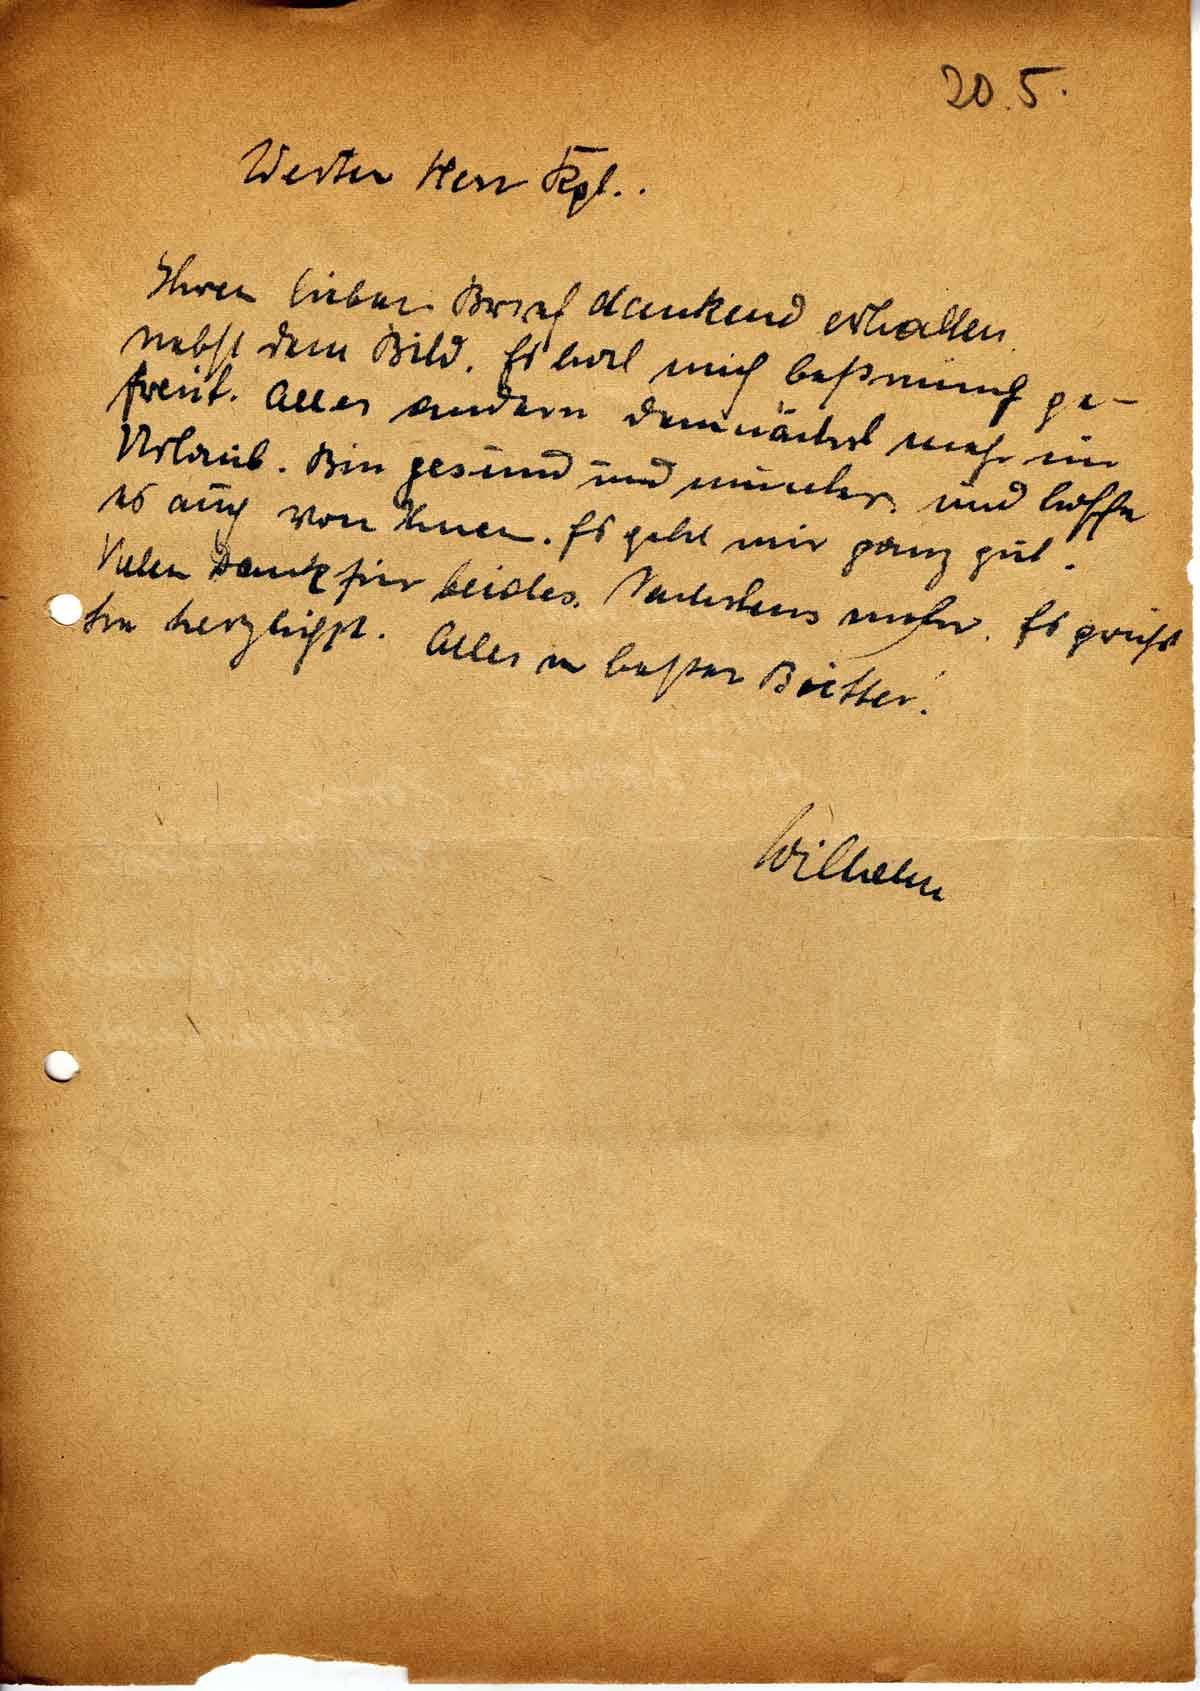 20.5.
Werter Herr Kpl..
Ihren lieben Brief dankend erhalten
nebst dem Bild. Es hat mich ge-
freut. Alles andere demnächst mehr im
Urlaub. Bin gesund und munter und hoffe
es auch von Ihnen. Es geht mir ganz gut.
Vielen Dank für beides. Nächstens mehr. Es grüßt
Sie herzlichst. Alles in bester Butter!
Wilhelm